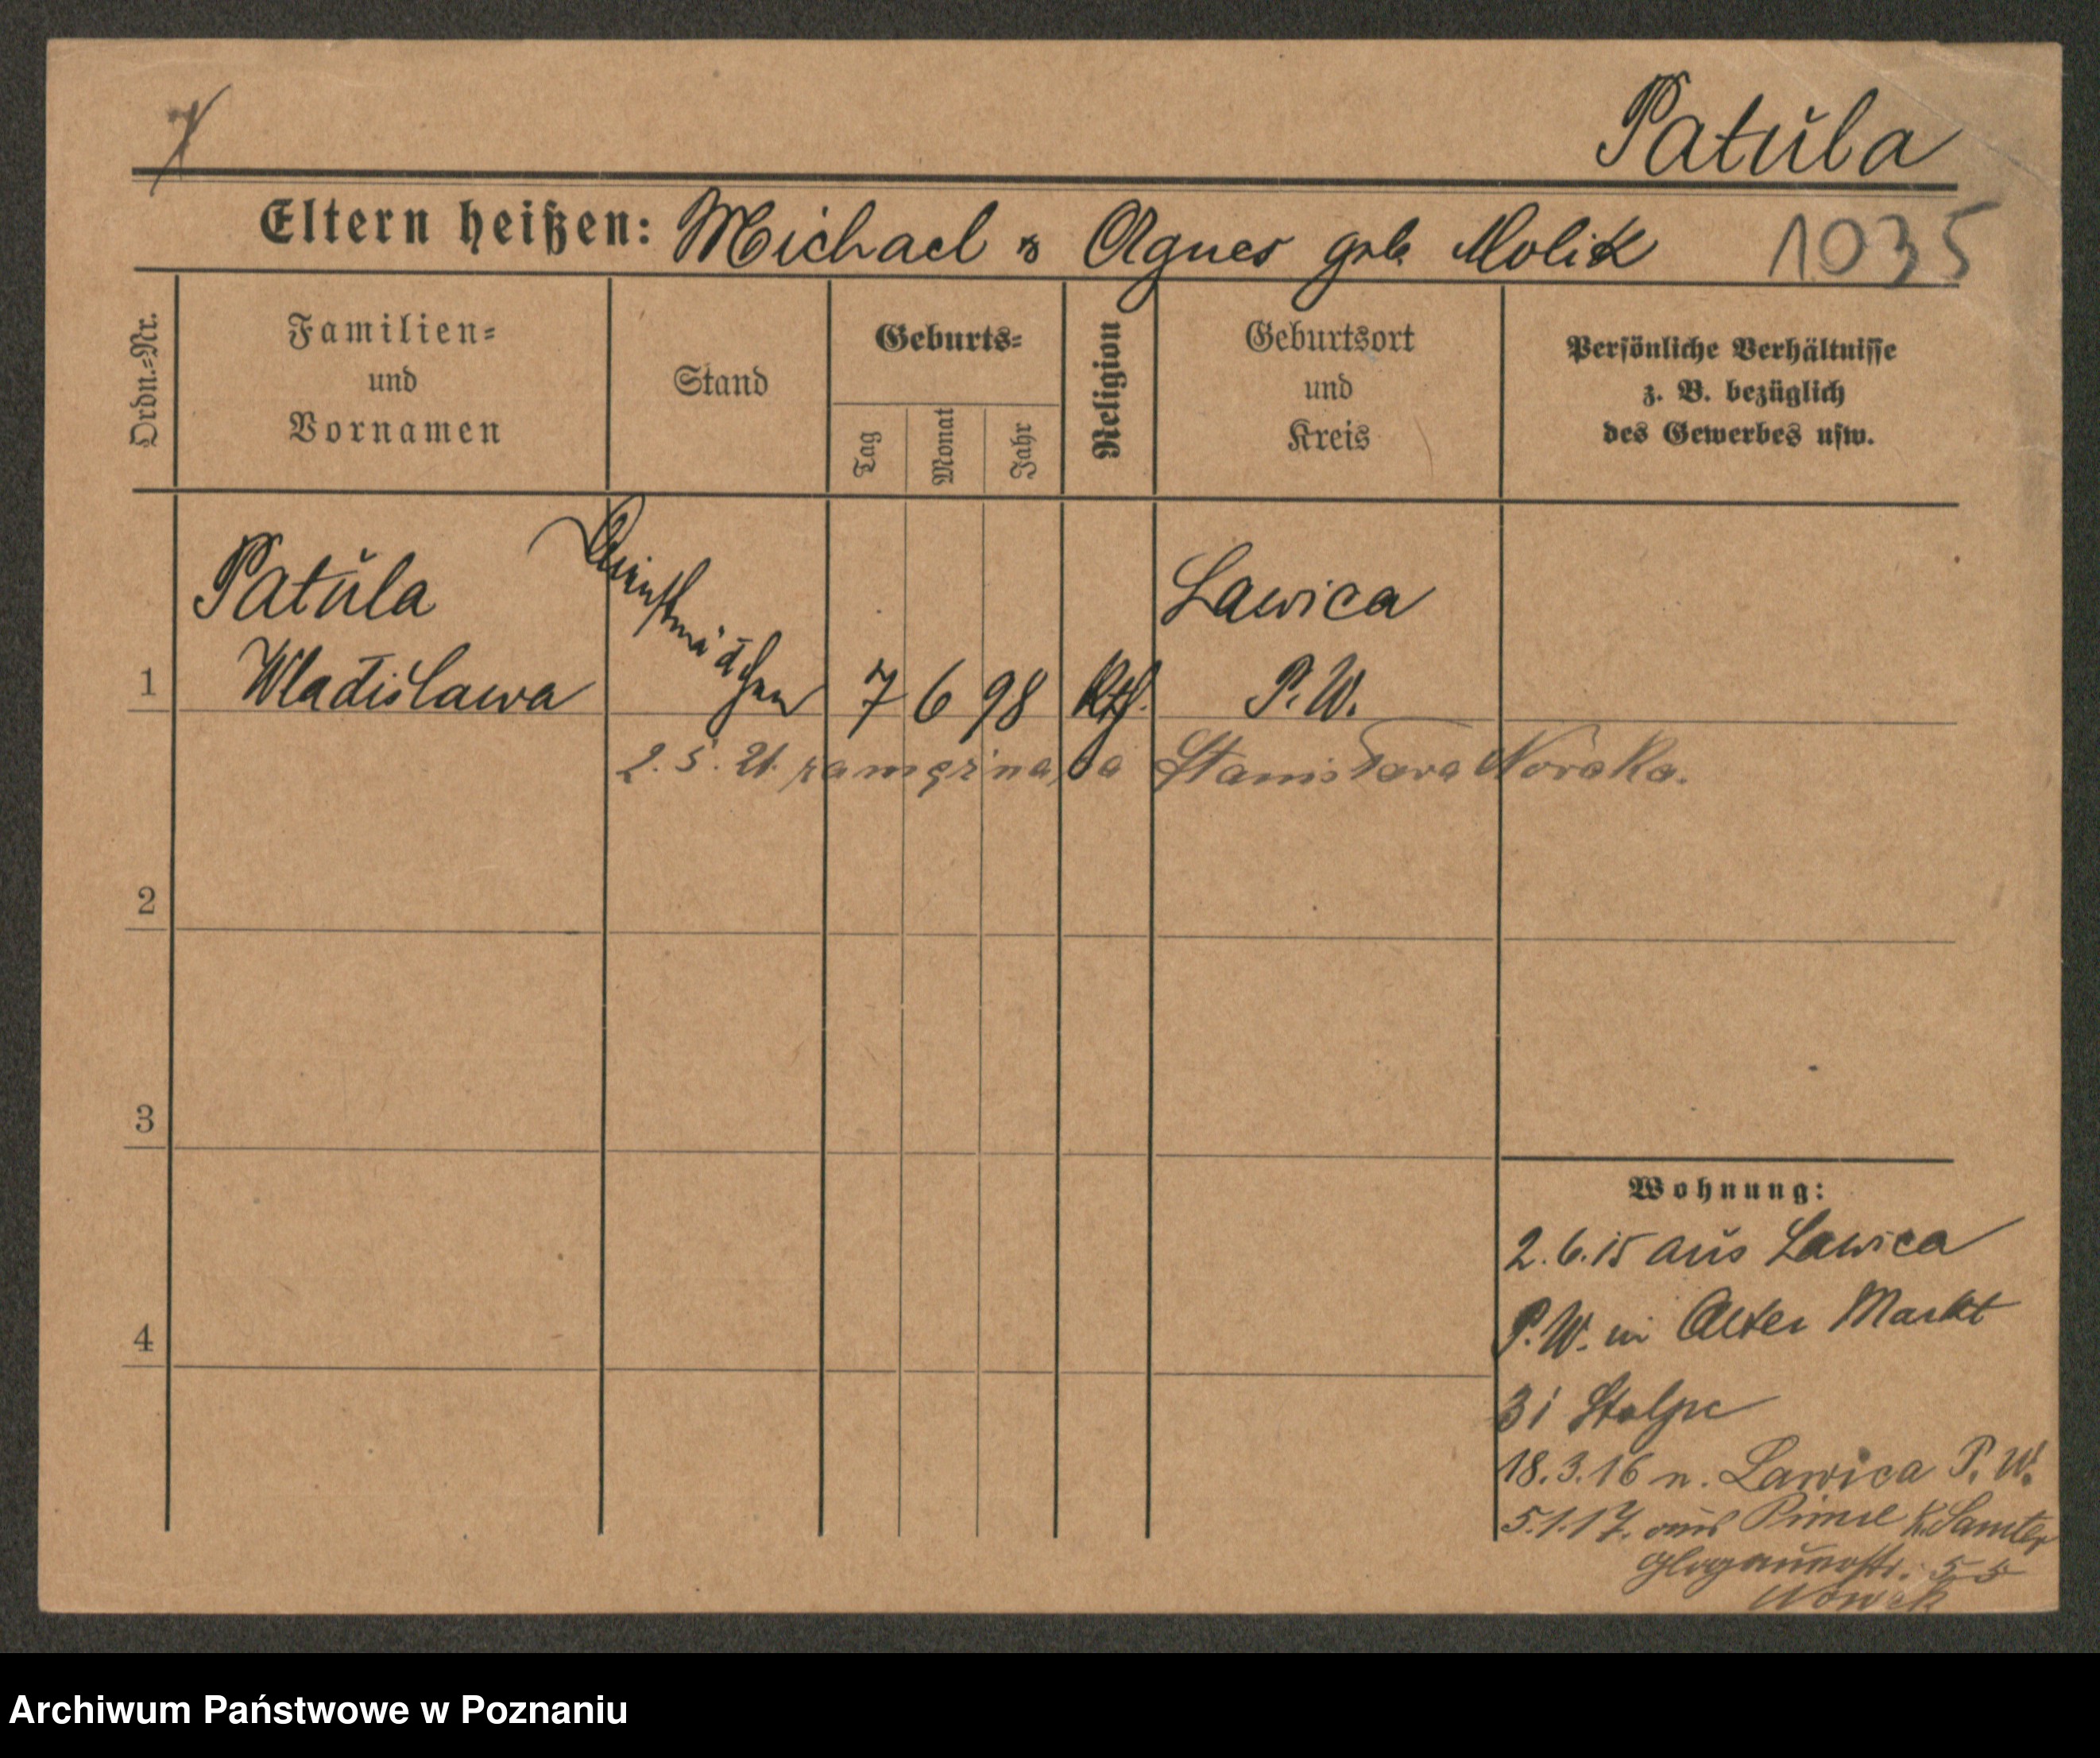 Patŭla
Eltern heißen: Michael & Agnes geb. Molik 1035
Ordn.=Nr.
Familien=
und
Vornamen
Stand
Geburts=
Tag
Monat
Jahr
Religion
Geburtsort
und
Kreis
Persönliche Verhältnisse
z. B. bezüglich
des Gewerbes usw.
1
Patŭla
Wladislawa
Dienstmädchen
7 6 98 Kth.
Lawica
P. W.
2. 5. 21. zamężna za Stanisława Nowaka.
2
3
4
Wohnung:
2.6.15 aŭs Lawica
P. W. in Alter Markt
31 Stolpe
18.3.16 n. Lawica P. W.
5.1.17. aus K. Samter
Glogauerstr. 55
Nowak
Archiwum Państwowe w Poznaniu